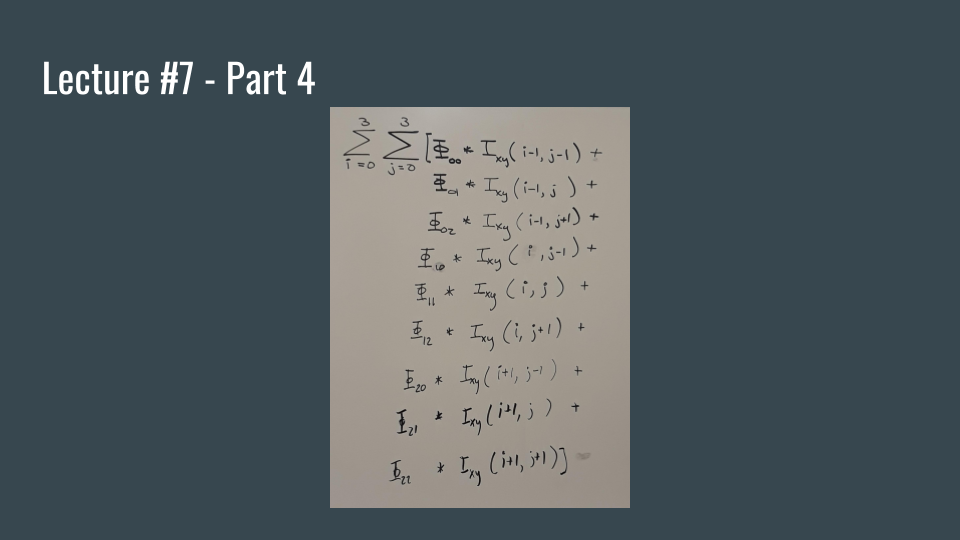 Lecture #7 - Part 4
3 3
∑ ∑ [Φ₀₀ * I_xy(i-1, j-1) +
i=0 j=0
Φ₀₁ * I_xy(i-1, j) +
Φ₀₂ * I_xy(i-1, j+1) +
Φ₁₀ * I_xy(i, j-1) +
Φ₁₁ * I_xy(i, j) +
Φ₁₂ * I_xy(i, j+1) +
Φ₂₀ * I_xy(i+1, j-1) +
Φ₂₁ * I_xy(i+1, j) +
Φ₂₂ * I_xy(i+1, j+1)]